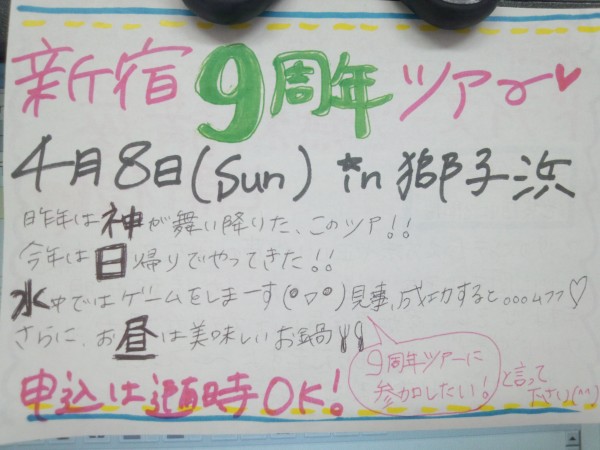 新宿9周年ツアー♥
4月8日(Sun) in 獅子浜
昨年は神が舞い降りた、このツアー!!
今年は日帰りでやってきた!!
水中ではゲームをしまーす(°▽°)見事、成功すると。。。ムフフ♡
さらに、お昼は美味しいお鍋
9周年ツアーに
参加したい!
と言って
下さい(^^)
申込は随時OK!